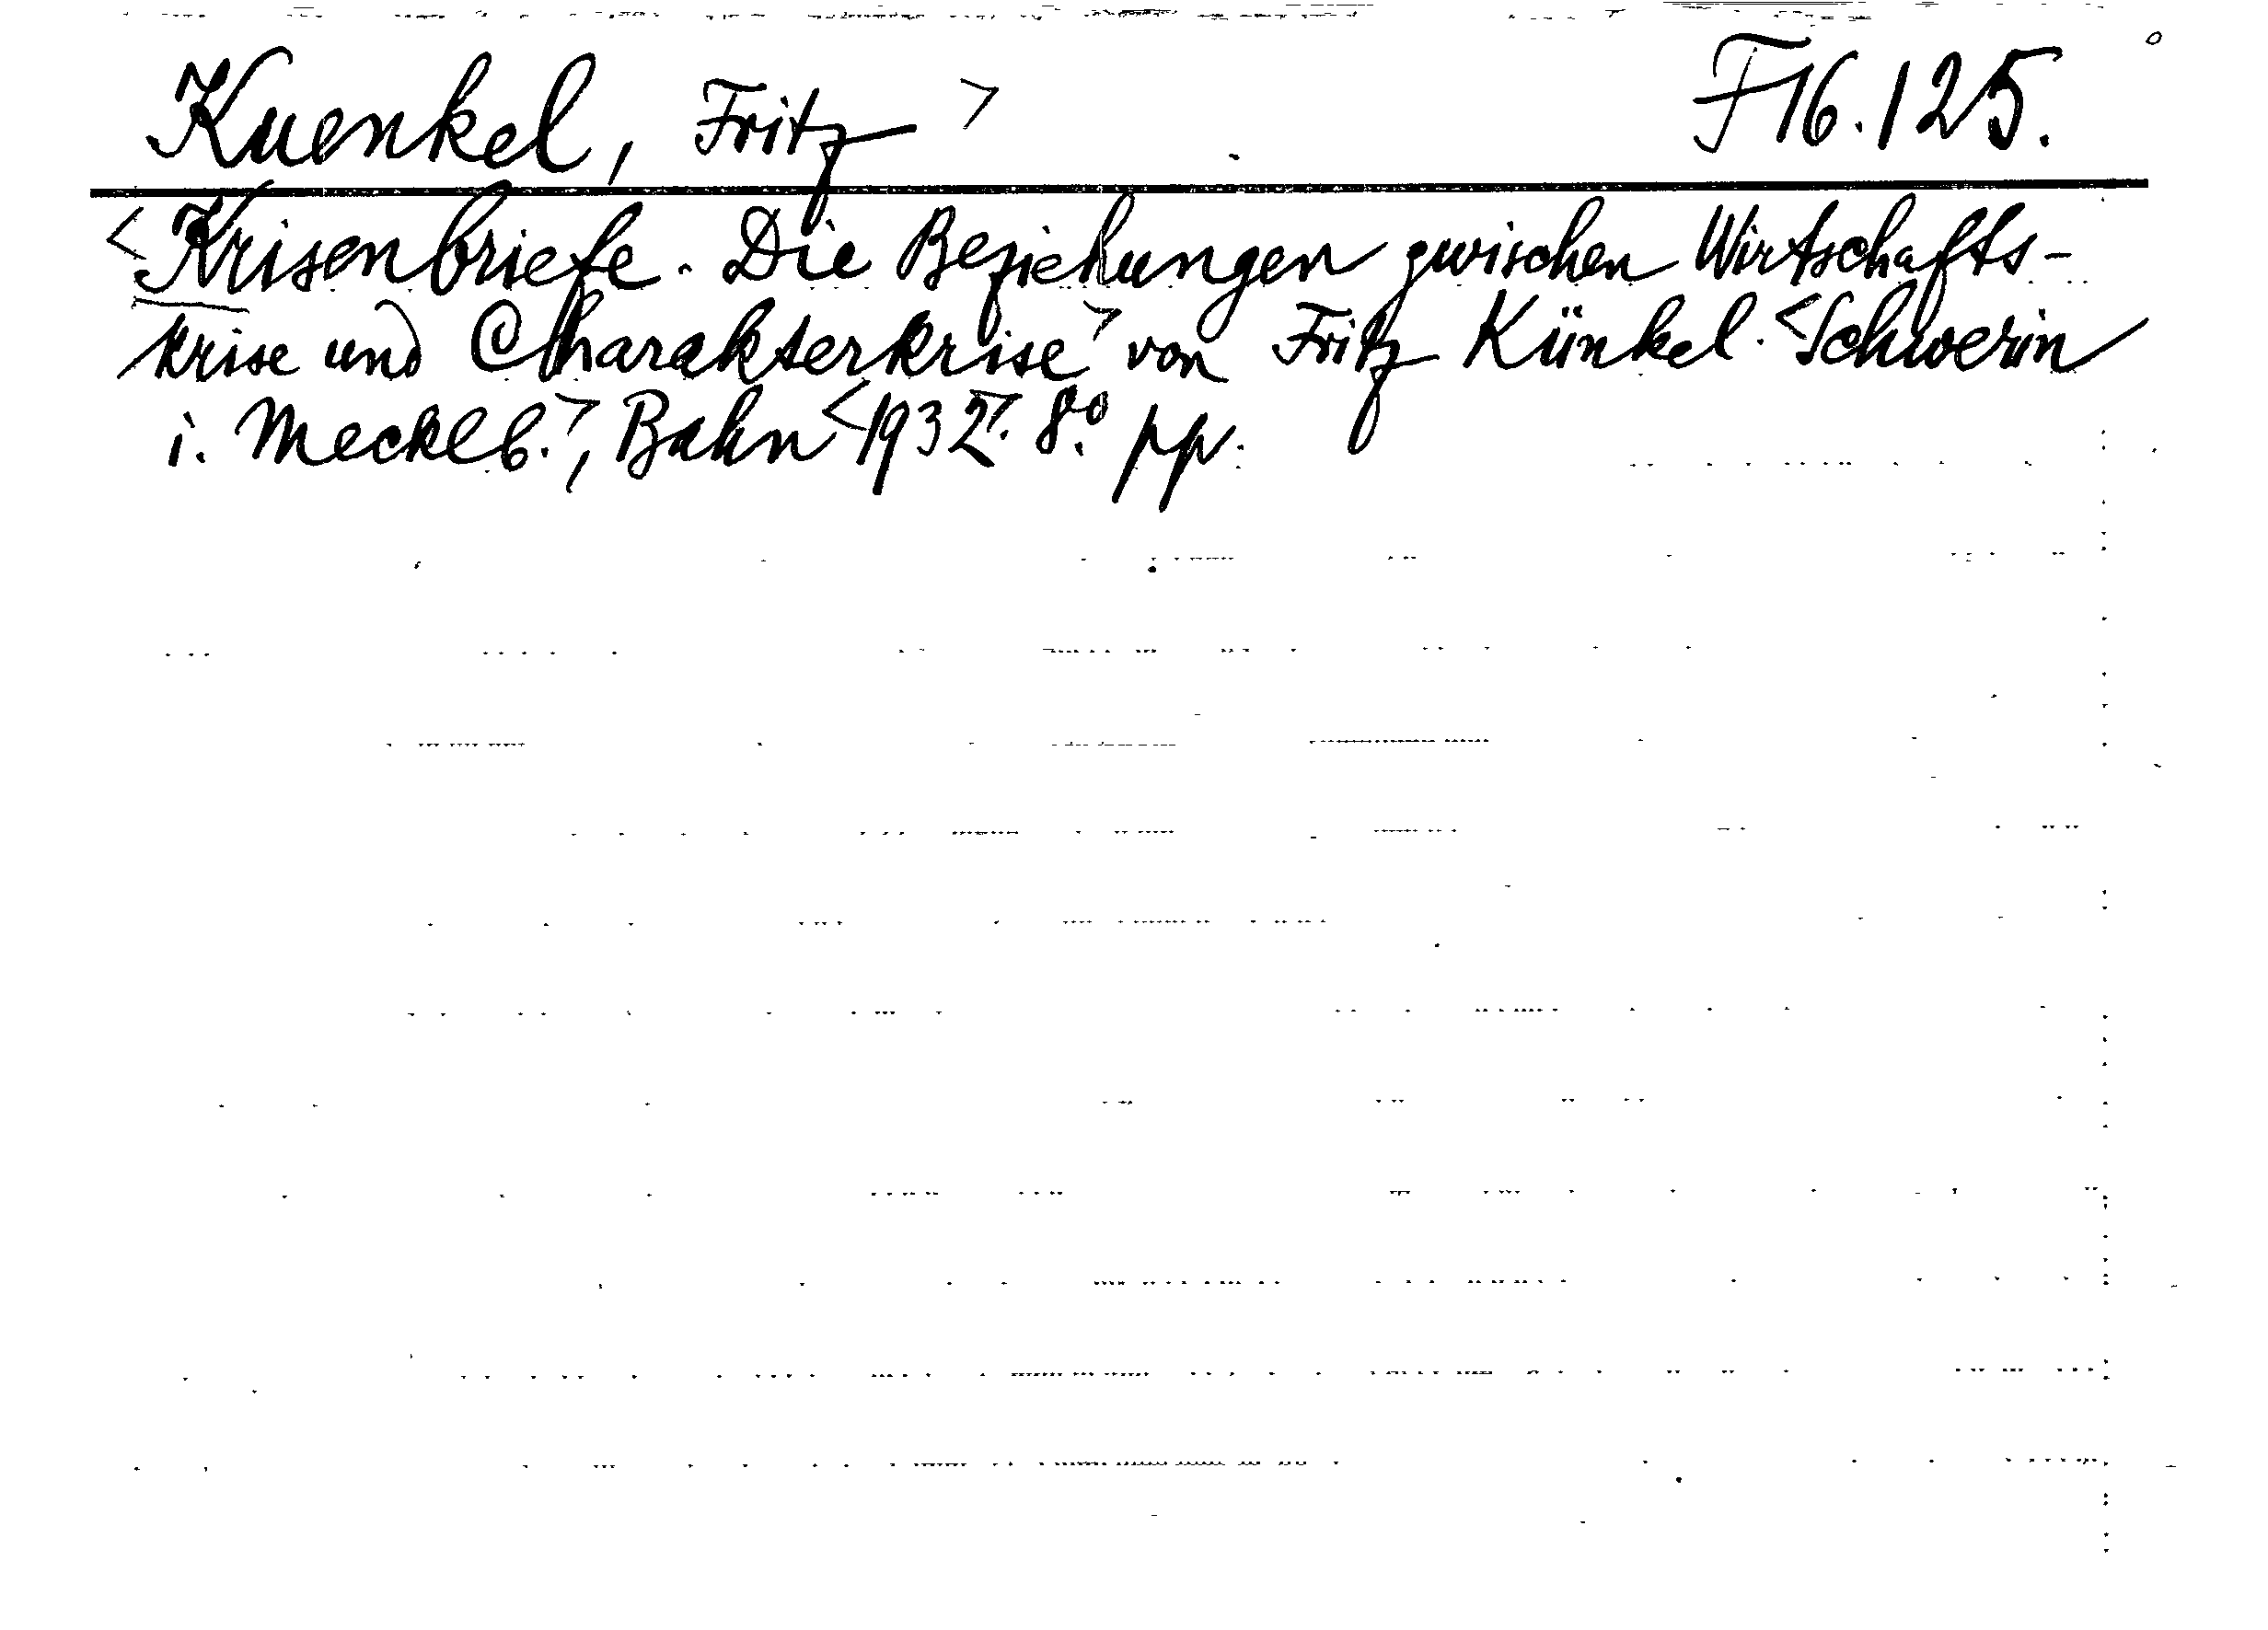 Kuenkel, Fritz > F16.125.
<Krisenbriefe. Die Beziehungen zwischen Wirtschafts-
krise und Charakterkrise> von Fritz Künkel. <Schwerin
i. Mecklb.>, Bahn <1932>. 8.° pp.